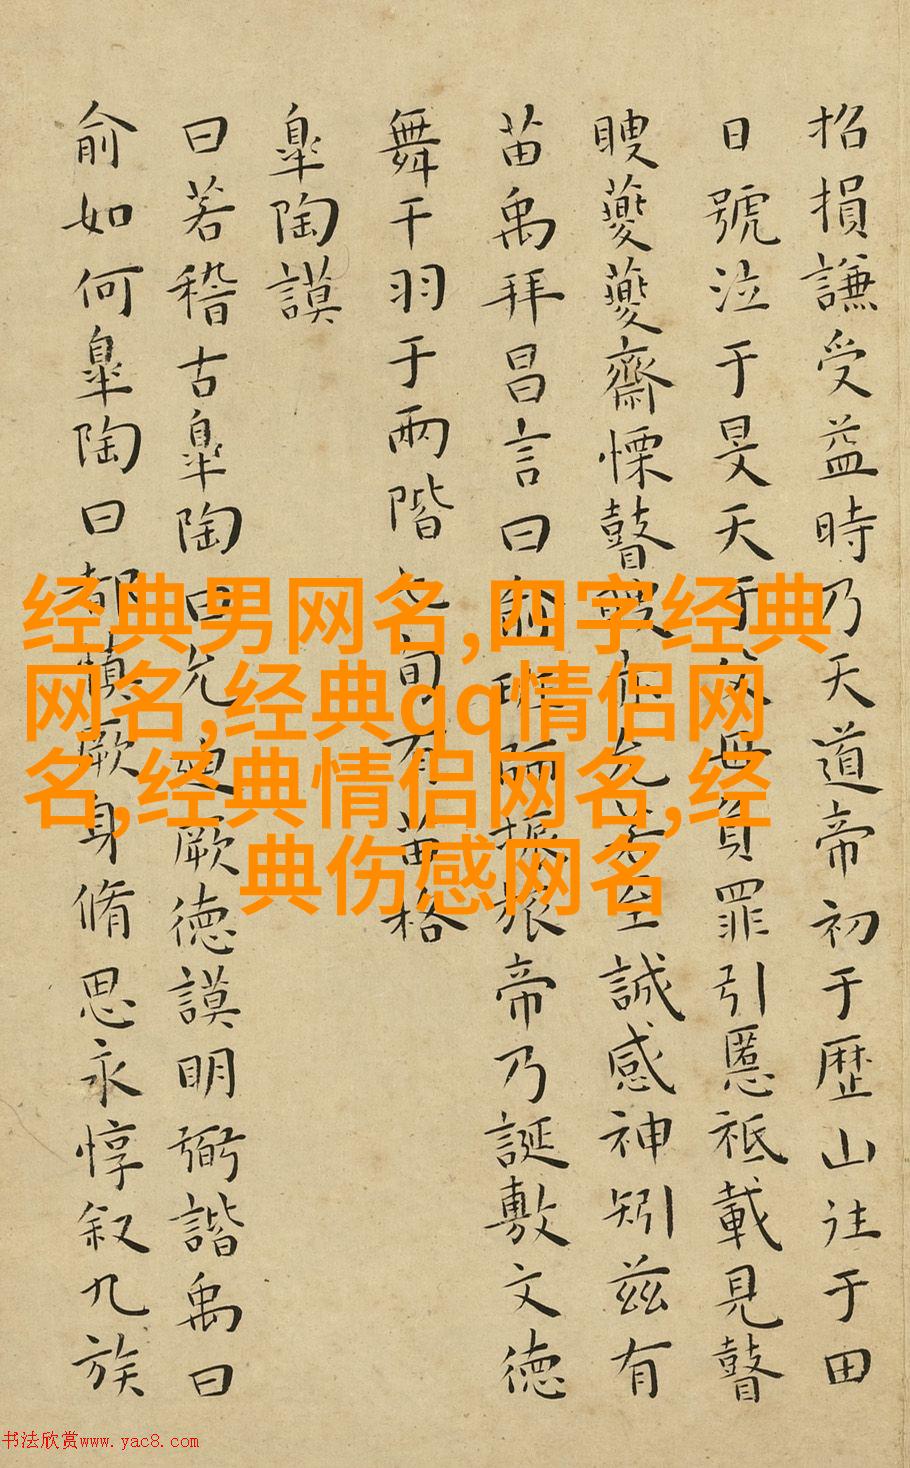 招損謙受益時乃天道帝初于歷山往于田
日號泣于旻天于父母負罪引慝祗載見瞽
瞍夔夔齋慄瞽瞍亦允若至誠感神矧茲有
苗禹拜昌言曰俞班師振旅帝乃誕敷文德
舞干羽于兩階七旬有苗格
臯陶謨
曰若稽古臯陶曰允迪厥德謨明弼諧禹曰
俞如何臯陶曰都慎厥身脩思永惇叙九族
经典男网名,四字经典
网名,经典qq情侣网
名,经典情侣网名,经
典伤感网名
书法欣赏www.yac8.com